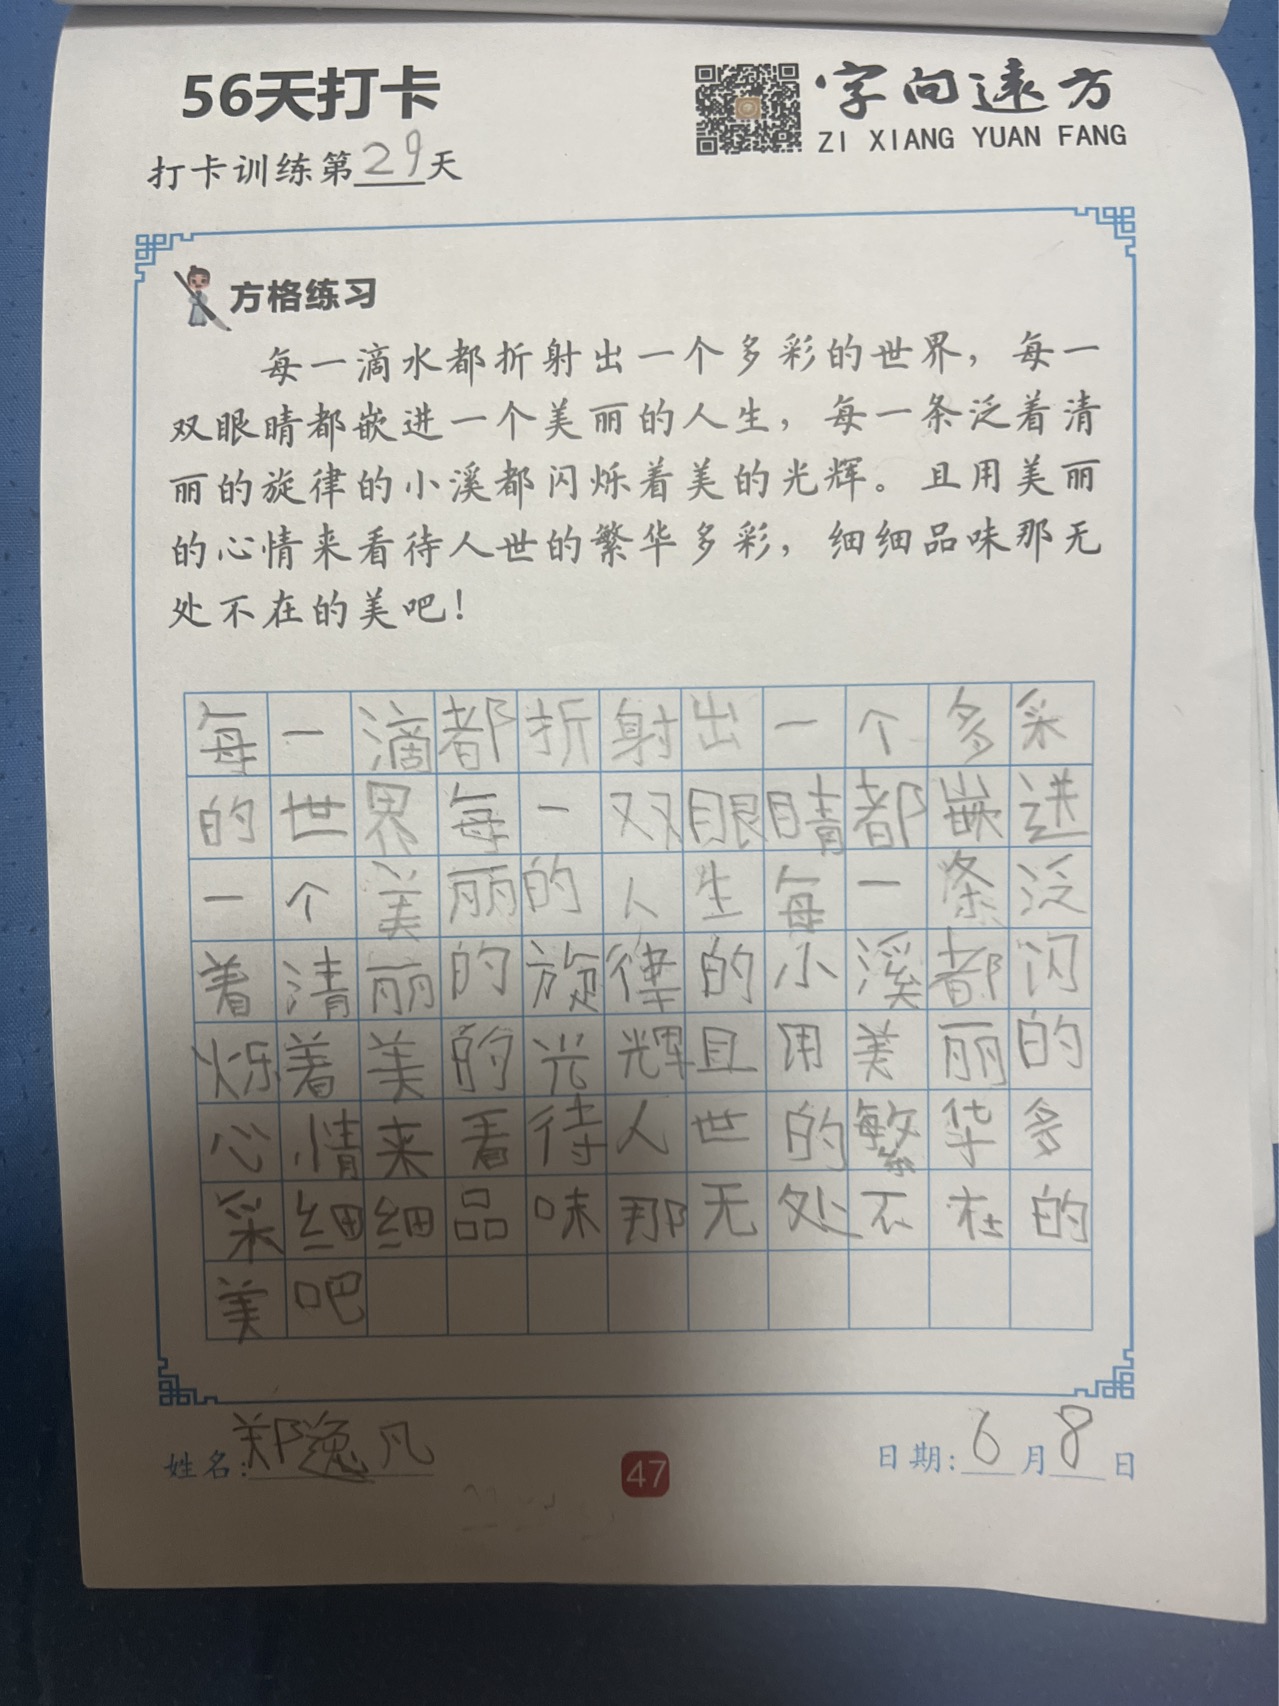 56天打卡
字向远方
ZI XIANG YUAN FANG
打卡训练第29天
方格练习
每一滴水都折射出一个多彩的世界，每一
双眼睛都嵌进一个美丽的人生，每一条泛着清
丽的旋律的小溪都闪烁着美的光辉。且用美丽
的心情来看待人世的繁华多彩，细细品味那无
处不在的美吧！
每一滴都折射出一个多采
的世界每一双眼睛都嵌进
一个美丽的人生每一条泛
着清丽的旋律的小溪都闪
烁着美的光辉且用美丽的
心情来看待人世的繁华多
采细细品味那无处不在的
美吧
姓名:郑逸凡
47
日期:6月8日